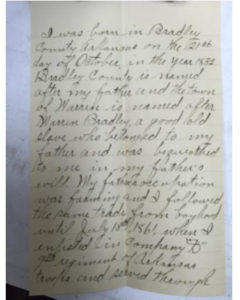 I was born in Bradley
County Arkansas on the 21st
day of October, in the year 1832
Bradley County is named
after my father and the town
of Warren is named after
Warren Bradley, a good old
slave who belonged to my
father and was bequeathed
to me in my father's
will. My father's occupation
was farming and I followed
the same trade from boyhood
until July 18th 1861, when I
enlisted in Company
9th regiment of Arkansas
troops and served through